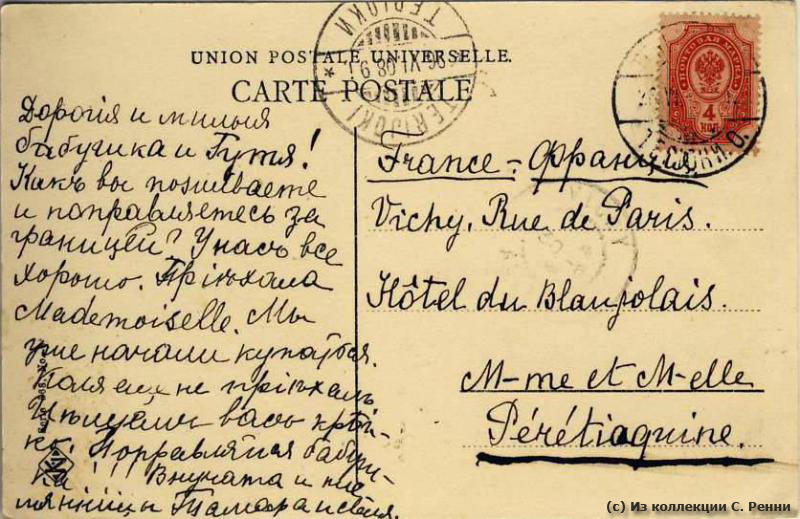 UNION POSTALE UNIVERSELLE.
CARTE POSTALE
TERIJOKI
ТЕРІОКИ
4
КОП
Дорогія и милыя
бабушка и Гутя!
Какъ вы поживаете
и поправляетесь за
границей? У насъ все
хорошо. Пріѣхала
Mademoiselle. Мы
уже начали купаться.
еще не пріѣхалъ
Цѣлуемъ васъ крѣп-
ко. Поправляйся бабуш-
ка! Внучата и пле
мянницы Тамара
France - Франція
Vichy, Rue de Paris.
Hôtel du Blaujolais.
M-me et M-elle
Pérétiaguine.
(c) Из коллекции С. Ренни